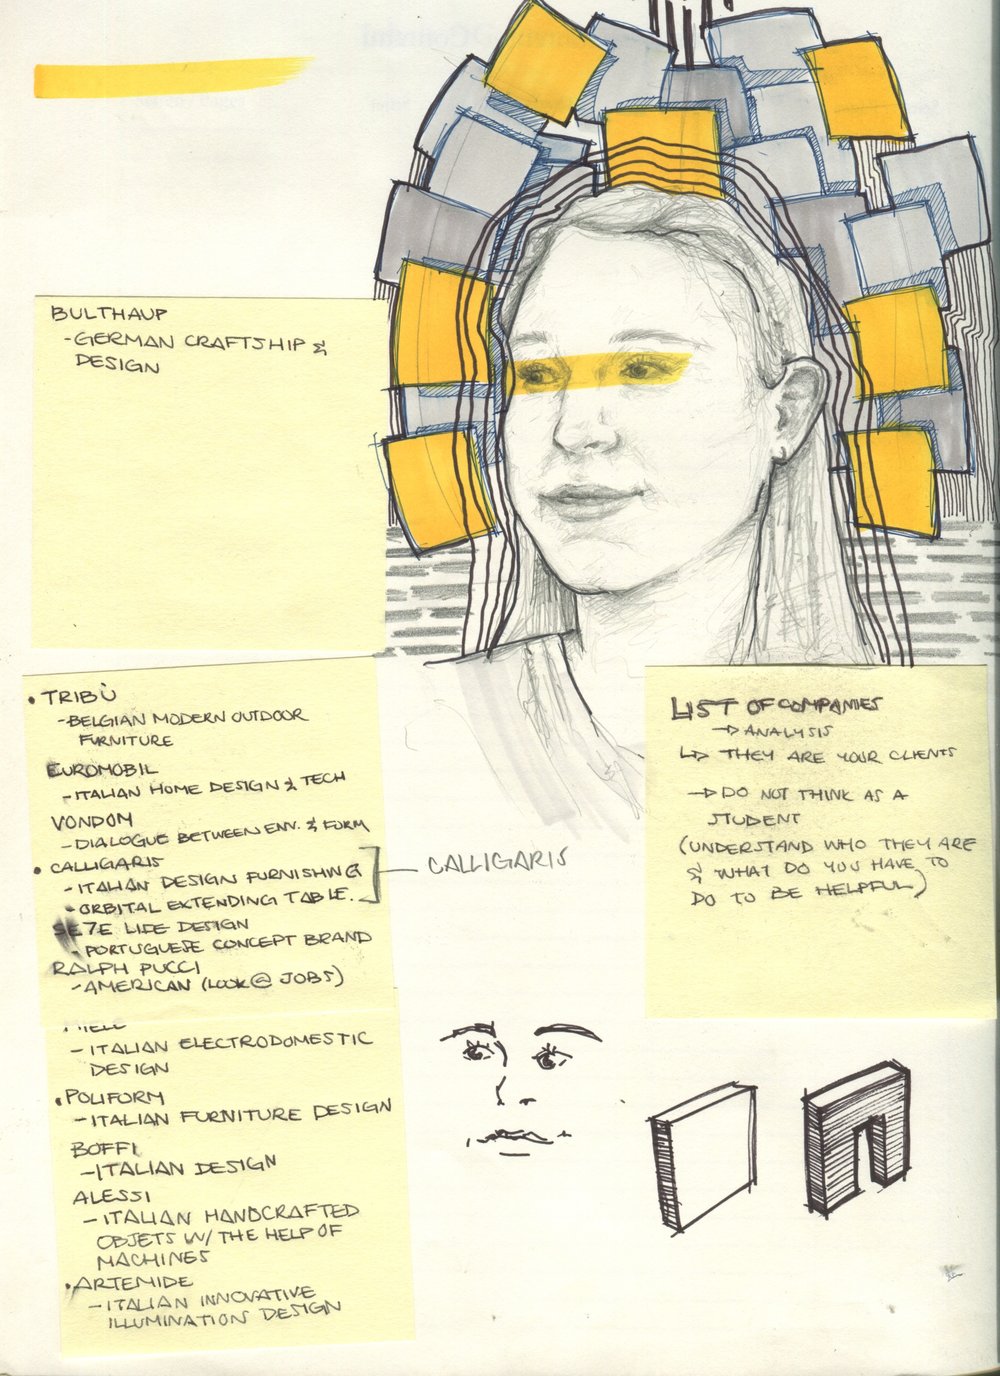 BULTHAUP
-GERMAN CRAFTSHIP &
DESIGN
• TRIBÙ
-BELGIAN MODERN OUTDOOR
FURNITURE
EUROMOBIL
-ITALIAN HOME DESIGN & TECH
VONDOM
-DIALOGUE BETWEEN ENV. & FORM
• CALLIGARIS
-ITALIAN DESIGN FURNISHING
-ORBITAL EXTENDING TABLE.
SE7E LIFE DESIGN
-PORTUGUESE CONCEPT BRAND
RALPH PUCCI
-AMERICAN (LOOK @ JOBS)
CALLIGARIS
MIELE
-ITALIAN ELECTRODOMESTIC
DESIGN
• POLIFORM
-ITALIAN FURNITURE DESIGN
BOFFI
-ITALIAN DESIGN
ALESSI
-ITALIAN HANDCRAFTED
OBJETS W/ THE HELP OF
MACHINES
• ARTEMIDE
-ITALIAN INNOVATIVE
ILLUMINATION DESIGN
LIST OF COMPANIES
→ ANALYSIS
↳ THEY ARE YOUR CLIENTS
→ DO NOT THINK AS A
STUDENT
(UNDERSTAND WHO THEY ARE
& WHAT DO YOU HAVE TO
DO TO BE HELPFUL)